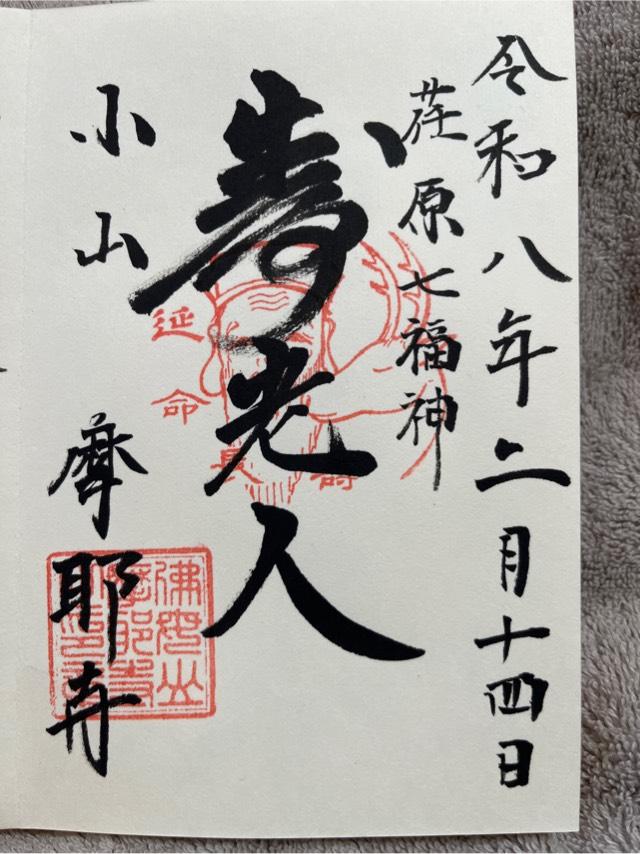 令和八年二月十四日
荏原七福神
寿老人
延命
小山 摩耶寺
佛母山
摩耶寺